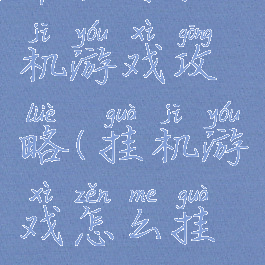 jī yóu xì gōng
机游戏攻
lüè guà jī yóu
略(挂机游
xì zěn me guà
戏怎么挂